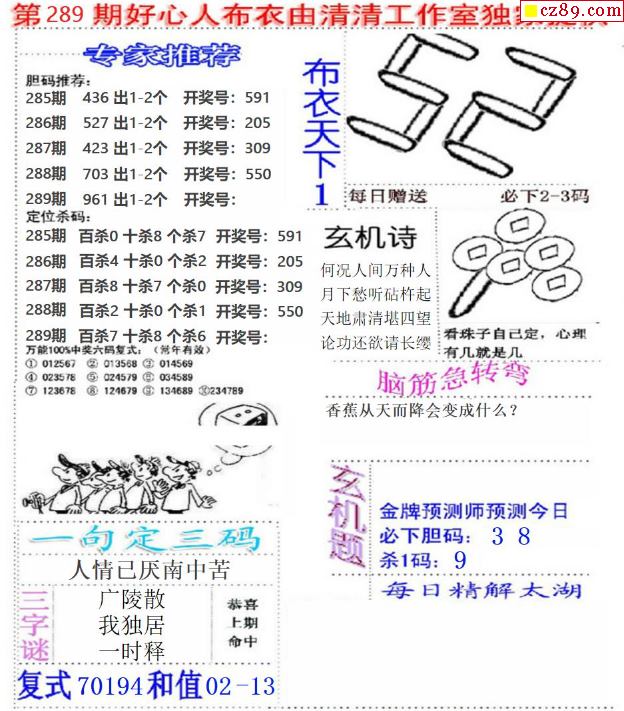 第289期好心人布衣由清清工作室独家提供
cz89.com
专家推荐
胆码推荐：
285期 436 出1-2个 开奖号：591
286期 527 出1-2个 开奖号：205
287期 423 出1-2个 开奖号：309
288期 703 出1-2个 开奖号：550
289期 961 出1-2个 开奖号：
定位杀码：
285期 百杀0 十杀8 个杀7 开奖号：591
286期 百杀4 十杀0 个杀2 开奖号：205
287期 百杀8 十杀7 个杀0 开奖号：309
288期 百杀2 十杀0 个杀1 开奖号：550
289期 百杀7 十杀8 个杀6 开奖号：
万能100%中奖六码复式：（常年有效）
① 012567 ② 013568 ③ 014569
④ 023578 ⑤ 024579 ⑥ 034589
⑦ 123678 ⑧ 124679 ⑨ 134689 ⑩234789
一句定三码
人情已厌南中苦
三字谜
广陵散
我独居
一时释
恭喜
上期
命中
复式70194和值02-13
布衣天下1
52
每日赠送 必下2-3码
玄机诗
何况人间万种人
月下愁听砧杵起
天地肃清堪四望
论功还欲请长缨
看珠子自己定，心理
有几就是几
脑筋急转弯
香蕉从天而降会变成什么？
玄机题
金牌预测师预测今日
必下胆码：3 8
杀1码：9
每日精解太湖